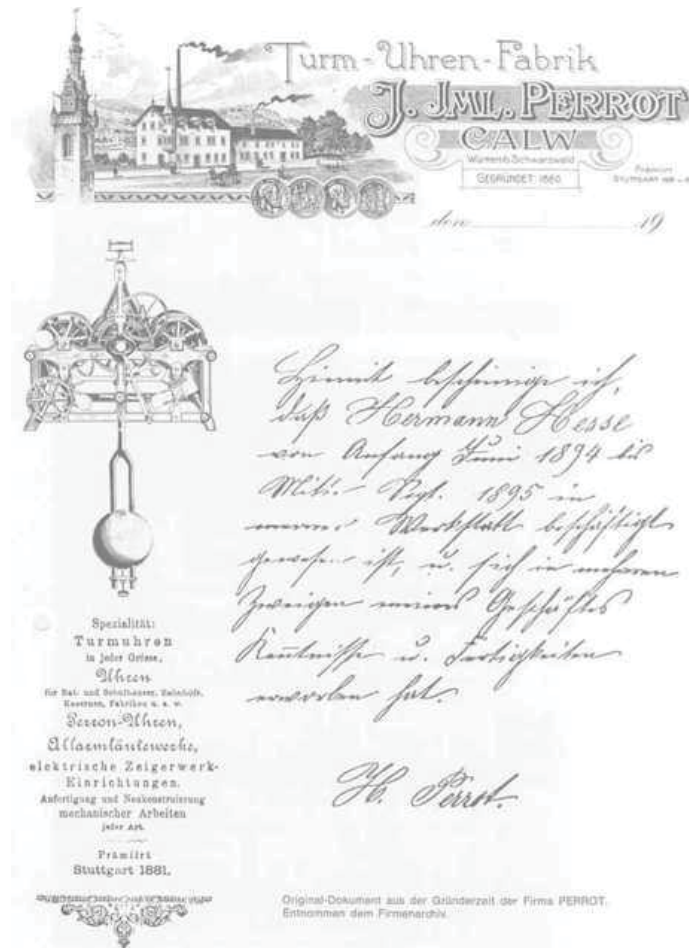 Turm-Uhren-Fabrik
J. JML. PERROT
CALW
Württemb. Schwarzwald
GEGRÜNDET: 1860
Prämiirt
STUTTGART
den 19
Hiemit bescheinige ich,
daß Hermann Hesse
von Anfang Juni 1894 bis
Mitte Sept. 1895 in
meiner Werkstatt beschäftigt
gewesen ist, u. sich in mehreren
Zweigen meines Geschäftes
Kenntnisse u. Fertigkeiten
erworben hat.
H. Perrot.
Spezialität:
Turmuhren
in jeder Grösse,
Uhren
für Rat- und Schulhäuser, Bahnhöfe,
Kasernen, Fabriken u. s. w.
Perron-Uhren,
Allarmläutewerke,
elektrische Zeigerwerk-
Einrichtungen.
Anfertigung und Neukonstruierung
mechanischer Arbeiten
jeder Art.
Prämiirt
Stuttgart 1881.
Original-Dokument aus der Gründerzeit der Firma PERROT.
Entnommen dem Firmenarchiv.